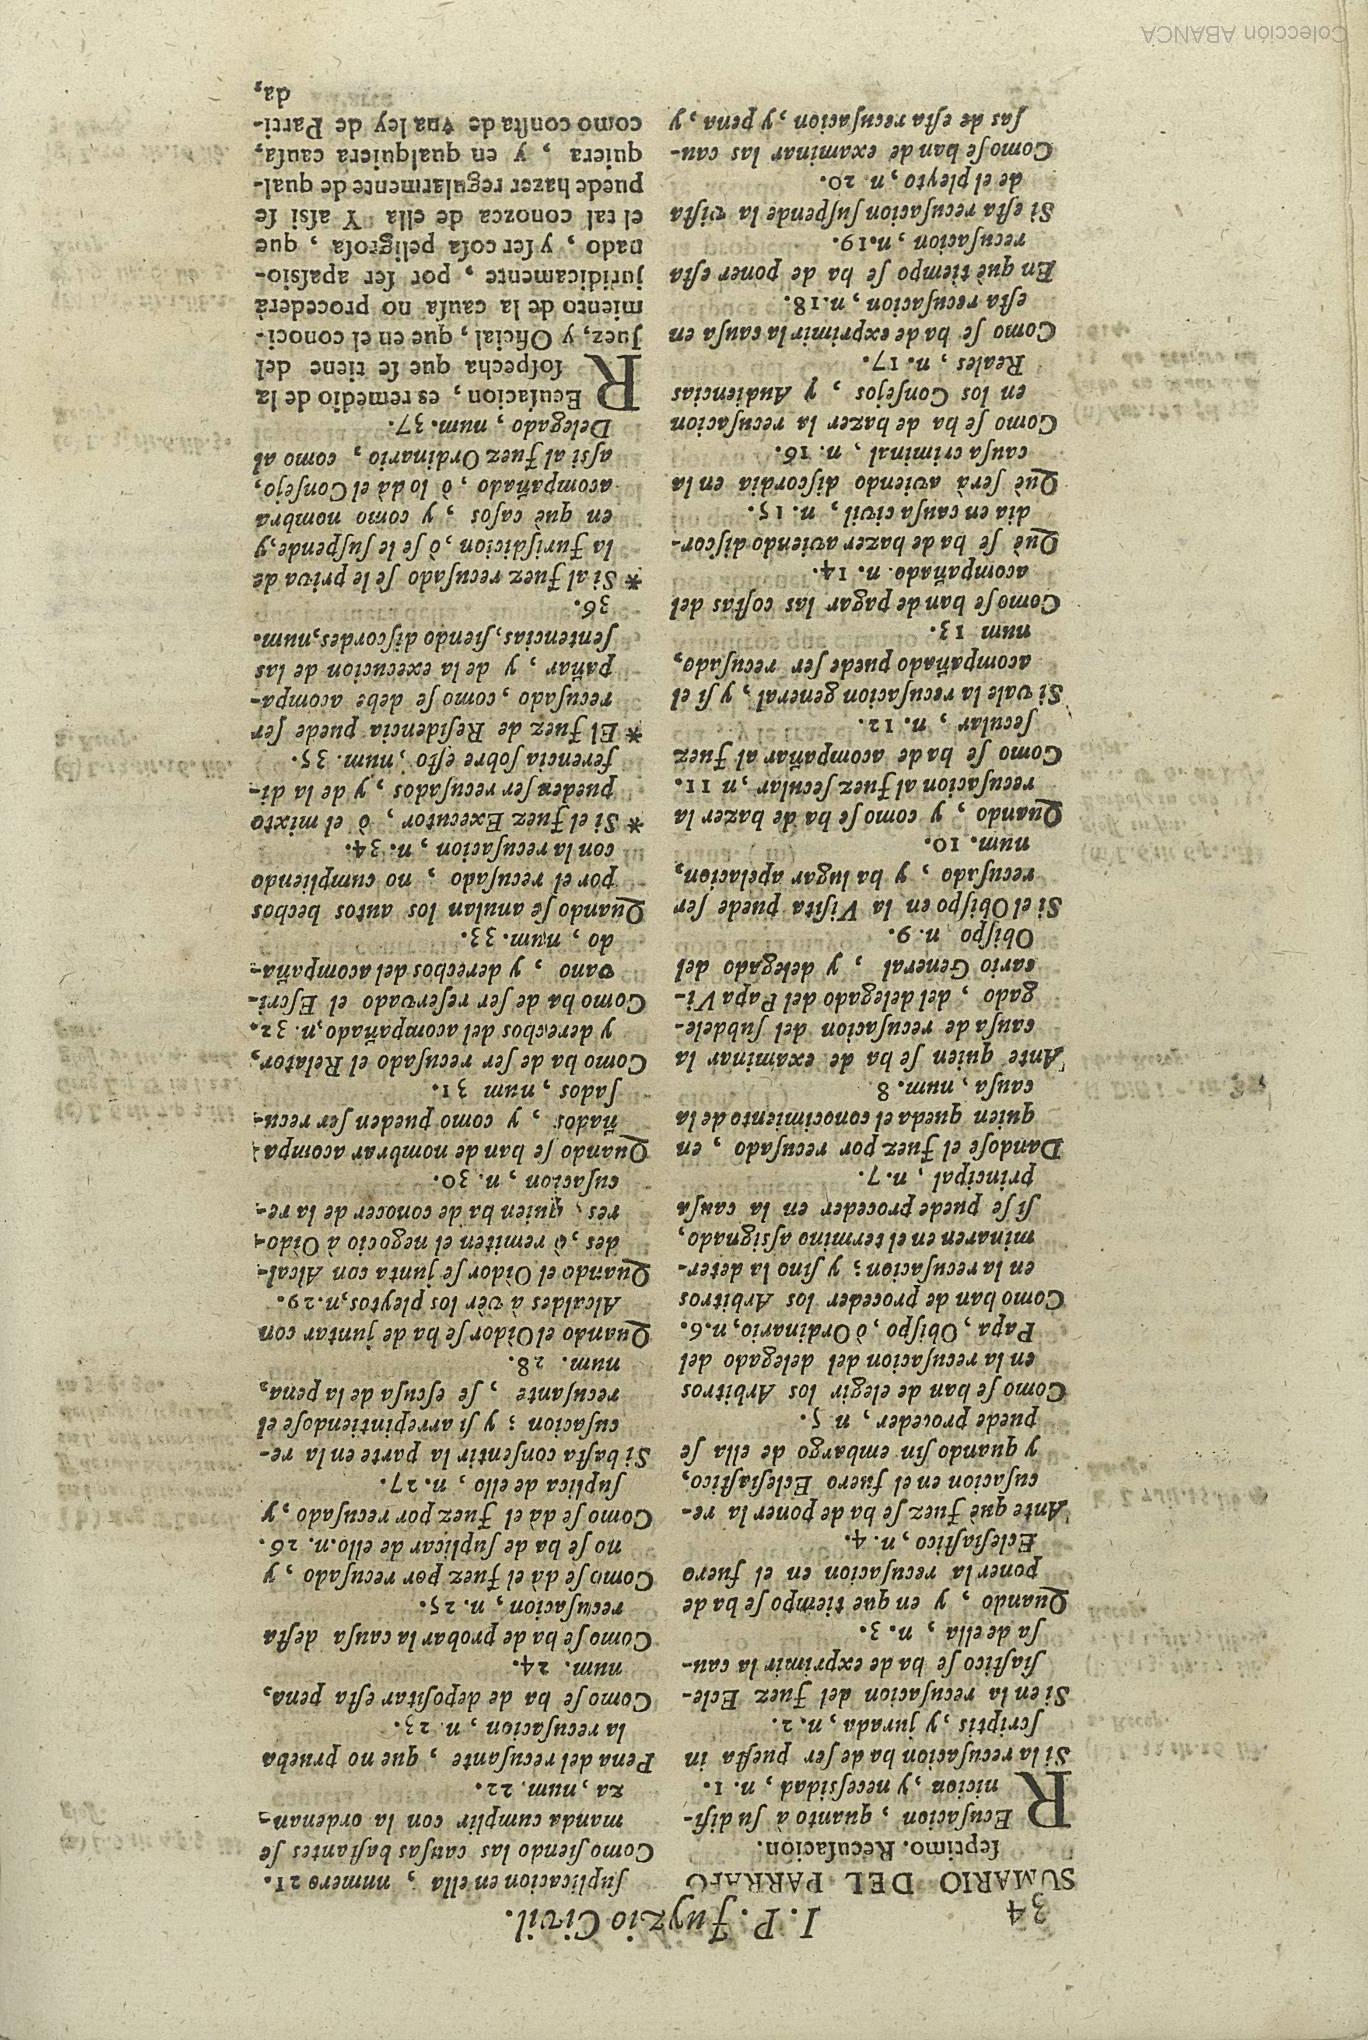 34
I. P. Juyzio Civil.
SUMARIO DEL PARRAFO
septimo. Recusacion.
REcusacion, quanto à su difi-
nicion, y necessidad, n. 1.
Si la recusacion ha de ser puesta in
scriptis, y jurada, n. 2.
Si en la recusacion del Juez Ecle-
siastico se ha de exprimir la cau-
sa de ella, n. 3.
Quando, y en que tiempo se ha de
poner la recusacion en el fuero
Eclesiastico, n. 4.
Ante què Juez se ha de poner la re-
cusacion en el fuero Eclesiastico,
y quando sin embargo de ella se
puede proceder, n 5.
Como se han de elegir los Arbitros
en la recusacion del delegado del
Papa, Obispo, ò Ordinario, n. 6.
Como han de proceder los Arbitros
en la recusacion; y sino la deter-
minaren en el termino assignado,
si se puede proceder en la causa
principal, n. 7.
Dandose el Juez por recusado, en
quien queda el conocimiento de la
causa, num. 8
Ante quien se ha de examinar la
causa de recusacion del subdele-
gado, del delegado del Papa Vi-
cario General, y delegado del
Obispo n. 9.
Si el Obispo en la Visita puede ser
recusado, y ha lugar apelacion,
num. 10.
Quando, y como se ha de hazer la
recusacion al Juez secular, n 11.
Como se ha de acompañar al Juez
secular, n. 12.
Si vale la recusacion general, y si el
acompañado puede ser recusado,
num 13.
Como se han de pagar las costas del
acompañado. n. 14.
Què se ha de hazer aviendo discor-
dia en causa civil, n. 15.
Què serà aviendo discordia en la
causa criminal, n. 16.
Como se ha de hazer la recusacion
en los Consejos, y Audiencias
Reales, n. 17.
Como se ha de exprimir la causa en
esta recusacion, n. 18.
En què tiempo se ha de poner esta
recusacion, n. 19.
Si esta recusacion suspende la vista
de el pleyto, n 20.
Como se han de examinar las cau-
sas de esta recusacion, y pena, y
suplicacion en ella, numero 21.
Como siendo las causas bastantes se
manda cumplir con la ordenan-
za, num. 22.
Pena del recusante, que no prueba
la recusacion, n. 23.
Como se ha de depositar esta pena,
num. 24.
Como se ha de probar la causa desta
recusacion, n. 25.
Como se dà el Juez por recusado, y
no se ha de suplicar de ello. n. 26.
Como se dà el Juez por recusado, y
suplica de ello, n. 27.
Si basta consentir la parte en la re-
cusacion; y si arrepintiendose el
recusante, se escusa de la pena,
num. 28.
Quando el Oìdor se ha de juntar con
Alcaldes à vèr los pleytos, n. 29.
Quando el Oìdor se junta con Alcal-
des, ò remiten el negocio à Oìdo-
res, quien ha de conocer de la re-
cusacion, n. 30.
Quando se han de nombrar acompa-
ñados, y como pueden ser recu-
sados, num 31.
Como ha de ser recusado el Relator,
y derechos del acompañado, n. 32.
Como ha de ser reservado el Escri-
vano, y derechos del acompaña-
do, num. 33.
Quando se anulan los autos hechos
por el recusado, no cumpliendo
con la recusacion, n. 34.
* Si el Juez Executor, ò el mixto
pueden ser recusados, y de la di-
ferencia sobre esto, num. 35.
* El Juez de Residencia puede ser
recusado, como se debe acompa-
pañar, y de la execucion de las
sentencias, siendo discordes, num.
36.
* Si al Juez recusado se le priva de
la Jurisdicion, ò se le suspende, y
en què casos, y como nombra
acompañado, ò lo dà el Consejo,
assi al Juez Ordinario, como al
Delegado, num. 37.
REcusacion, es remedio de la
sospecha que se tiene del
Juez, y Oficial, que en el conoci-
miento de la causa no procederà
juridicamente, por ser apassio-
nado, y ser cosa peligrosa, que
el tal conozca de ella Y assi se
puede hazer regularmente de qual-
quiera, y en qualquiera causa,
como consta de vna ley de Parti-
da,
Colección ABANCA